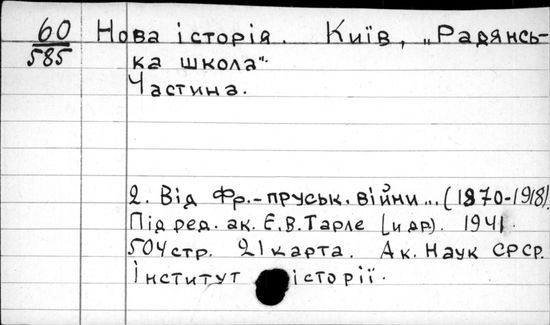 60
585
Нова історія. Київ, „Радянсь-
ка школа".
Частина.
2. Від Фр.-пруськ. війни... (1870-1918)
Під ред. ак. Є.В. Тарле [и др]. 1941.
504 стр. 21 карта. Ак. Наук СРСР.
Інститут історії.